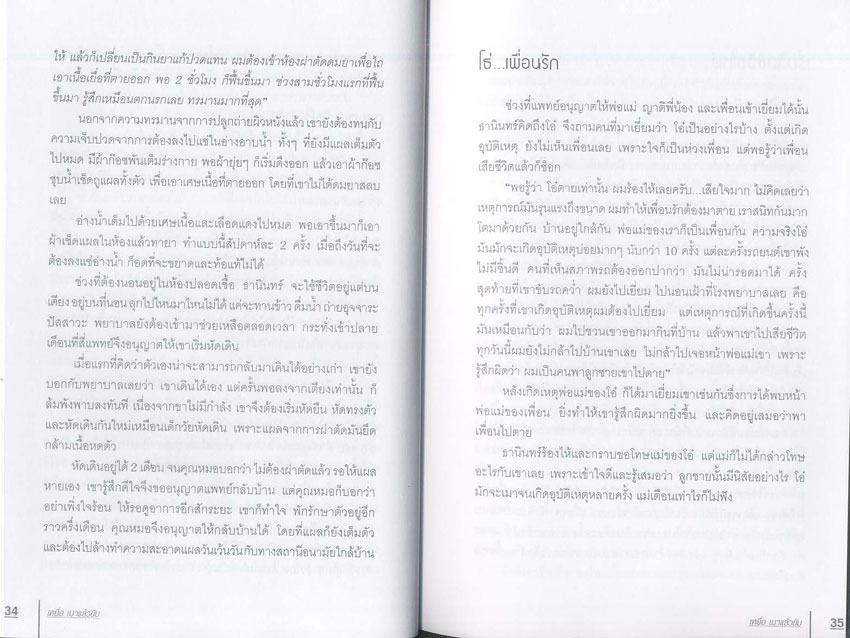 ให้ แล้วก็เปลี่ยนเป็นกินยาแก้ปวดแทน ผมต้องเข้าห้องผ่าตัดดมยาเพื่อไถ
เอาเนื้อเยื่อที่ตายออก พอ 2 ชั่วโมง ก็ฟื้นขึ้นมา ช่วงสามชั่วโมงแรกที่ฟื้น
ขึ้นมา รู้สึกเหมือนตกนรกเลย ทรมานมากที่สุด"
นอกจากความทรมานจากการปลูกถ่ายผิวหนังแล้ว เขายังต้องทนกับ
ความเจ็บปวดจากการต้องลงไปแช่ในอ่างอาบน้ำ ทั้งๆ ที่ยังมีแผลเต็มตัว
ไปหมด มีผ้าก๊อซพันเต็มร่างกาย พอผ้ายุ่ยๆ ก็เริ่มดึงออก แล้วเอาผ้าก๊อซ
ชุบน้ำเช็ดถูแผลทั้งตัว เพื่อเอาเศษเนื้อที่ตายออก โดยที่เขาไม่ได้ดมยาสลบ
เลย
อ่างน้ำเต็มไปด้วยเศษเนื้อและเลือดแดงไปหมด พอเอาขึ้นมาก็เอา
ผ้าเช็ดแผลในห้องแล้วทายา ทำแบบนี้สัปดาห์ละ 2 ครั้ง เมื่อถึงวันที่จะ
ต้องลงแช่อ่างน้ำ ก็อดที่จะขยาดและท้อแท้ไม่ได้
ช่วงที่ต้องนอนอยู่ในห้องปลอดเชื้อ ธานินทร์ จะใช้ชีวิตอยู่แต่บน
เตียง อยู่บนที่นอน ลุกไปไหนมาไหนไม่ได้ แค่จะทานข้าว ดื่มน้ำ ถ่ายอุจจาระ
ปัสสาวะ พยาบาลยังต้องเข้ามาช่วยเหลือตลอดเวลา กระทั่งเข้าปลาย
เดือนที่สี่แพทย์จึงอนุญาตให้เขาเริ่มหัดเดิน
เมื่อแรกที่คิดว่าตัวเองน่าจะสามารถกลับมาเดินได้อย่างเก่า เขายัง
บอกกับพยาบาลเลยว่า เขาเดินได้เอง แต่ครั้นพอลงจากเตียงเท่านั้น ก็
ล้มพังพาบลงทันที เนื่องจากขาไม่มีกำลัง เขาจึงต้องเริ่มหัดยืน หัดทรงตัว
และหัดเดินกันใหม่เหมือนเด็กวัยหัดเดิน เพราะแผลจากการผ่าตัดมันยึด
กล้ามเนื้อหดตัว
หัดเดินอยู่ได้ 2 เดือน จนคุณหมอบอกว่า ไม่ต้องผ่าตัดแล้ว รอให้แผล
หายเอง เขารู้สึกดีใจจึงขออนุญาตแพทย์กลับบ้าน แต่คุณหมอก็บอกว่า
อย่าเพิ่งใจร้อน ให้รอดูอาการอีกสักระยะ เขาก็ทำใจ พักรักษาตัวอยู่อีก
ราวครึ่งเดือน คุณหมอจึงอนุญาตให้กลับบ้านได้ โดยที่แผลก็ยังเต็มตัว
และต้องไปล้างทำความสะอาดแผลวันเว้นวันกับทางสถานีอนามัยใกล้บ้าน
34
เหยื่อ เมาแล้วขับ
โธ่...เพื่อนรัก
ช่วงที่แพทย์อนุญาตให้พ่อแม่ ญาติพี่น้อง และเพื่อนเข้าเยี่ยมได้นั้น
ธานินทร์คิดถึงโอ๋ จึงถามคนที่มาเยี่ยมว่า โอ๋เป็นอย่างไรบ้าง ตั้งแต่เกิด
อุบัติเหตุ ยังไม่เห็นเพื่อนเลย เพราะใจก็เป็นห่วงเพื่อน แต่พอรู้ว่าเพื่อน
เสียชีวิตแล้วก็ช็อก
"พอรู้ว่า โอ๋ตายเท่านั้น ผมร้องไห้เลยครับ...เสียใจมาก ไม่คิดเลยว่า
เหตุการณ์มันรุนแรงถึงขนาด ผมทำให้เพื่อนรักต้องมาตาย เราสนิทกันมาก
โตมาด้วยกัน บ้านอยู่ใกล้กัน พ่อแม่ของเราก็เป็นเพื่อนกัน ความจริงโอ๋
มันมักจะเกิดอุบัติเหตุบ่อยมากๆ นับกว่า 10 ครั้ง แต่ละครั้งรถยนต์เขาพัง
ไม่มีชิ้นดี คนที่เห็นสภาพรถต้องออกปากว่า มันไม่น่ารอดมาได้ ครั้ง
สุดท้ายที่เขาขับรถคว่ำ ผมยังไปเยี่ยม ไปนอนเฝ้าที่โรงพยาบาลเลย คือ
ทุกครั้งที่เขาเกิดอุบัติเหตุผมต้องไปเยี่ยม แต่เหตุการณ์ที่เกิดขึ้นครั้งนี้
มันเหมือนกับว่า ผมไปชวนเขาออกมากินที่บ้าน แล้วพาเขาไปเสียชีวิต
ทุกวันนี้ผมยังไม่กล้าไปบ้านเขาเลย ไม่กล้าไปเจอหน้าพ่อแม่เขา เพราะ
รู้สึกผิดว่า ผมเป็นคนพาลูกชายเขาไปตาย"
หลังเกิดเหตุพ่อแม่ของโอ๋ ก็ได้มาเยี่ยมเขาเช่นกันซึ่งการได้พบหน้า
พ่อแม่ของเพื่อน ยิ่งทำให้เขารู้สึกผิดมากยิ่งขึ้น และคิดอยู่เสมอว่าพา
เพื่อนไปตาย
ธานินทร์ร้องไห้และกราบขอโทษแม่ของโอ๋ แต่แม่ก็ไม่ได้กล่าวโทษ
อะไรกับเขาเลย เพราะเข้าใจดีและรู้เสมอว่า ลูกชายนั้นมีนิสัยอย่างไร โอ๋
มักจะเมาจนเกิดอุบัติเหตุหลายครั้ง แม่เตือนเท่าไรก็ไม่ฟัง
เหยื่อ เมาแล้วขับ
35